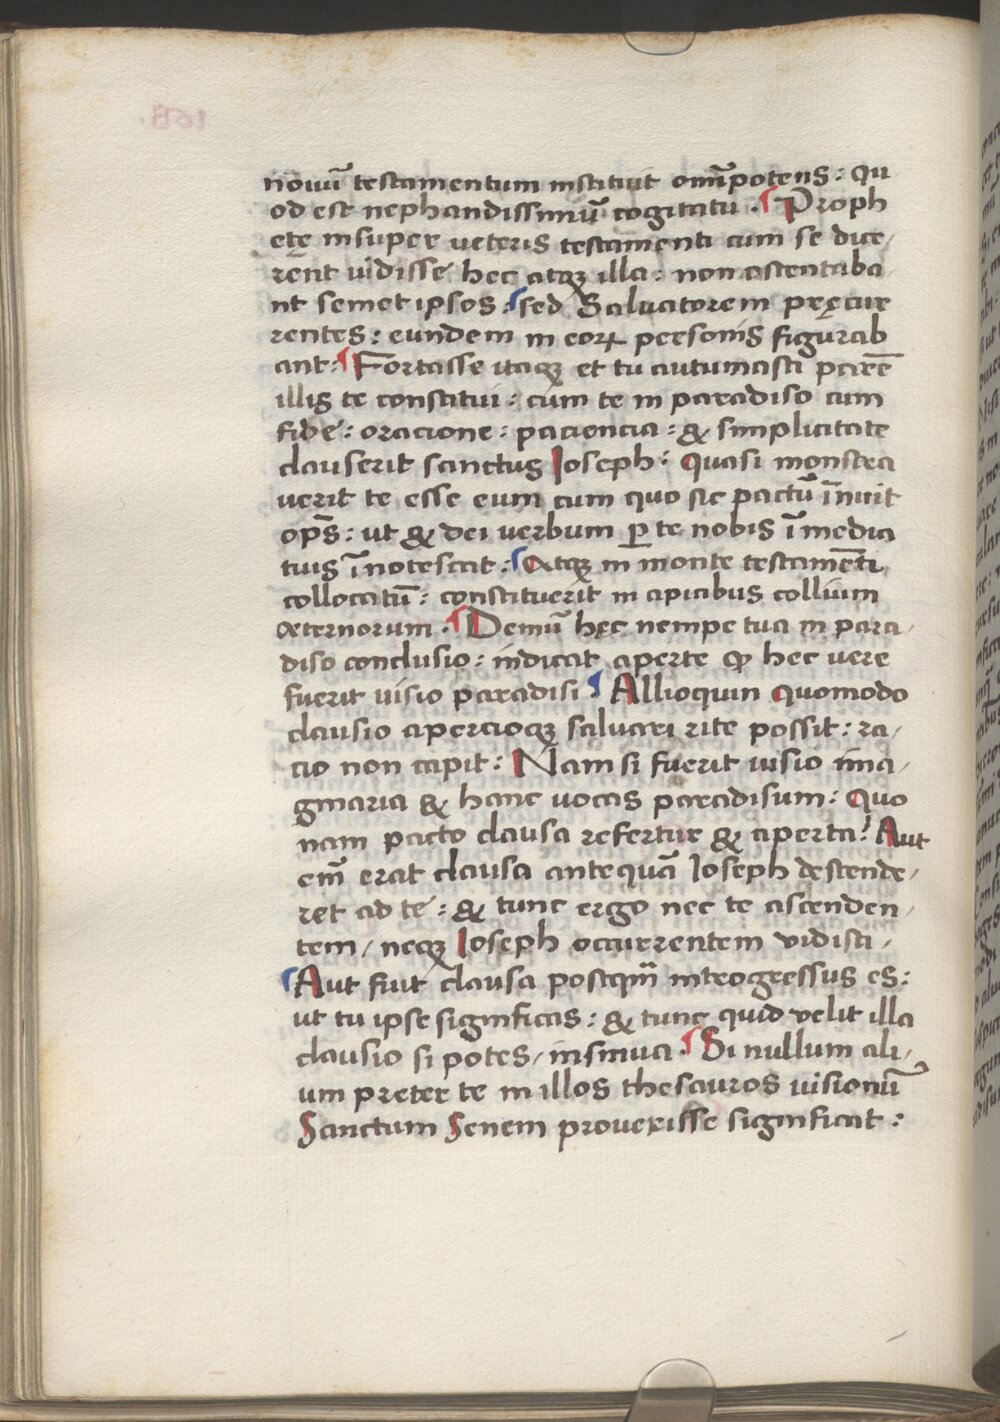 nouū testamentum instituit om̄potens : Qu
od est nephandissimū cogitatu . ¶ Proph
etę insuper ueteris testamenti cum se dice/
rent uidisse hec atqꝫ illa : non ostentaba
nt semet ipsos : ¶ sed Saluatorem pręcur
rentes : eundem in eoꝝ personis figurab
ant : ¶ Fortasse itaqꝫ et tu autumasti parē
illis te constitui : cum te in paradiso cum
fide : oracione : paciencia : & simplicitate
clauserit sanctus Ioseph : Quasi monstra
uerit te esse eum cum quo sic pactū īniit
op̄s : ut & dei uerbum ꝑ te nobis ī media
tuis īnotescat : ¶ Atqꝫ in monte testamēti
collocatū : constituerit in apicibus collium
æternorum . ¶ Demū hęc nempe tua in para/
diso conclusio : indicat aperte ꝙ hec uere
fuerit uisio paradisi ¶ Allioquin quomodo
clausio aperaioqꝫ saluari rite possit : ra/
cio non capit : Nam si fuerit uisio ima/
ginaria & hanc uocas paradisum : Quo
nam pacto clausa refertur & aperta ? Aut
em̄ erat clausa antequā Ioseph descende/
ret ad te : & tunc ergo nec te ascenden/
tem / neqꝫ Ioseph occurrentem vidisti .
¶ Aut fuit clausa postqm̄ introgressus es :
ut tu ipse significas : & tunc quid velit illa
clausio si potes / insinua . ¶ Si nullum ali/
um preter te in illos thesauros uisionū
Sanctum Senem prouexisse significat :